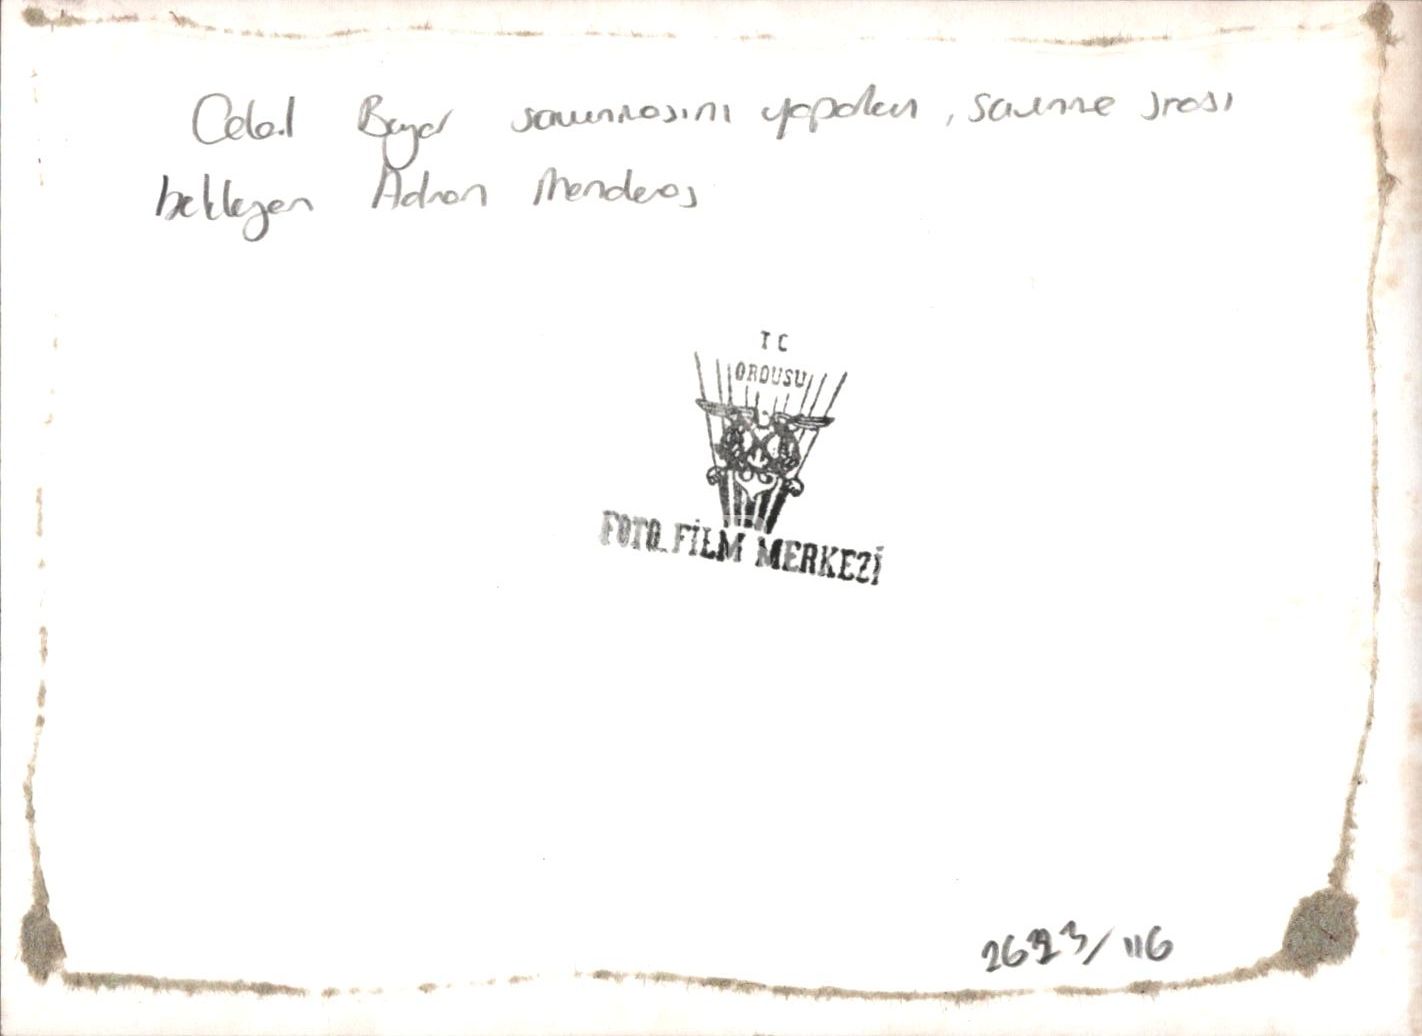 Celal Bayar savunmasını yaparken, savunma sırası
bekleyen Adnan Menderes
T C
ORDUSU
FOTO FİLM MERKEZİ
/116